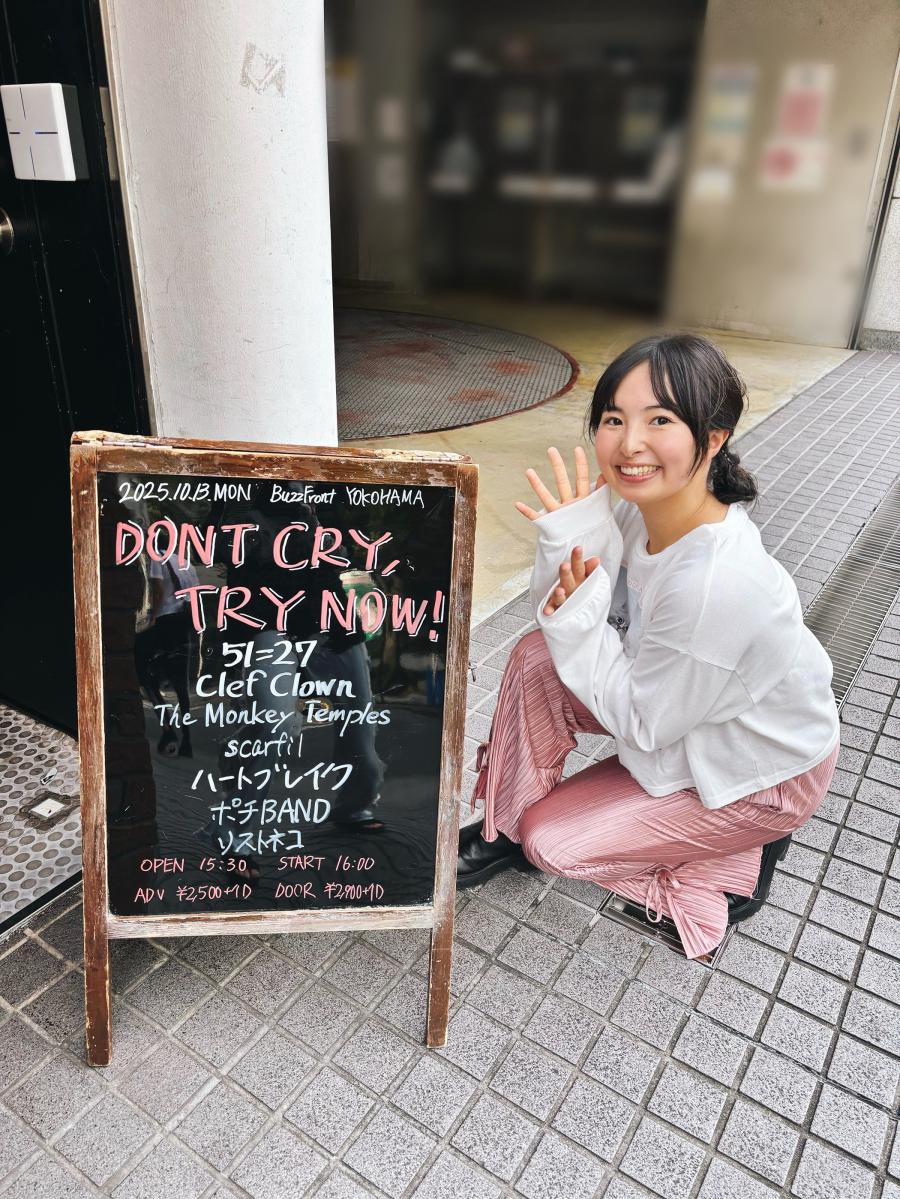 2025.10.13.MON BuzzFront YOKOHAMA
DONT CRY,
TRY NOW!
51=27
Clef Clown
The Monkey Temples
scarfil
ハートブレイク
ポチBAND
リストネコ
OPEN 15:30 START 16:00
ADV ¥2,500+1D DOOR ¥2,900+1D